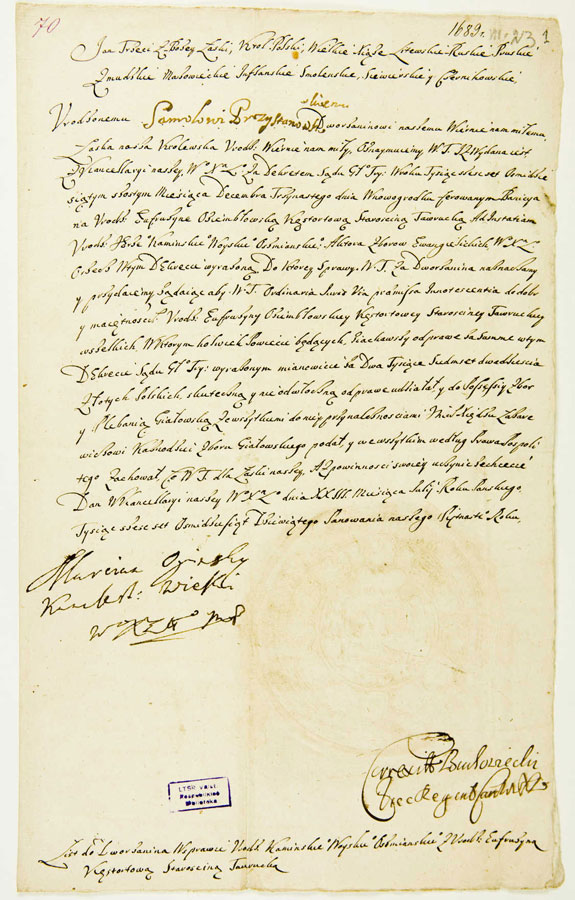 70
1689 r.
Jan Trzeci z Bożey Łaski, Krol Polski, Wielkie Xiąże Litewskie Ruskie Pruskie
Żmudzkie Mazowieckie Inflanskie Smolenskie, Siewierskie y Czernihowskie
Vrodzonemu Samołowi Przystanowskiemu Dworzaninowi naszemu Wiernie nam miłemu
Łaska nasza Krolewska Vrodz. Wiernie nam miły. Oznaymuiemy W. T. Iż Wydana iest
z Kancellaryi naszey W. X. L. za Dekretem Sądu Gł. Try: Wroku Tysiąc szesc set Osmdzie
siątym szostym Miesiąca Decembra Trzynastego dnia w Nowogrodku ferowanym Banicya
na Vrodz. Eufruzyne Kęsztortową Starościną Tawrucką Ad Instantiam
Vrodz. Kaminskie Woyskie Oszmianskie Aktora Zborow Ewangielickich W. X. L.
Osob w tym Dekrecie wyrażoną Do ktorey Sprawy W. T. za Dworzanina naznaczamy
y przydaiemy, żądaiąc aby W. T. Ordinaria Iuris Via praemissa Innotescentia do dobr
y maiętnosci Vrodz. Eufruzyny Kęsztortowey Starosciney Tawruckiey
wszelkich, w ktorym kolwiek Powiecie będących, ziachawszy odprawę za Summę w tym
Dekrecie Sądu Gł. Try: wyrażonym mianowicie za Dwa Tysiące Siedmset dwadziescia
Złotych Polskich, skuteczną y nieodwłoczną odprawę udziałał y do Possesiy Zbor
y Plebanią Giałowską ze wszytkimi do niey przynależnosciami
wiczowi Kaznodziei Zboru Giałowskiego podał y we wszytkim według Prawa Pospoli
tego zachował, co W. T. dla Łaski naszey, a z powinnosci swoiey uczynić zechcecie
Dan w Kancellaryi naszey W. X. L. dnia XXIII Miesiąca Julij Roku Panskiego
Tysiąc szesc set Osmdziesiąt Dziewiątego Panowania naszego Piętnasto Roku.
Marcian Oginsky
Kanclerz Wielki
W X L mp
Correxit
LTSR Valst.
Respublikinė
Biblioteka
List do Dworzanina Wyprawie Vrodz Kaminskie Woyskie Oszmianskie z Vrodz. Eufruzyną
Kęsztortową Starosciną Tawrucką